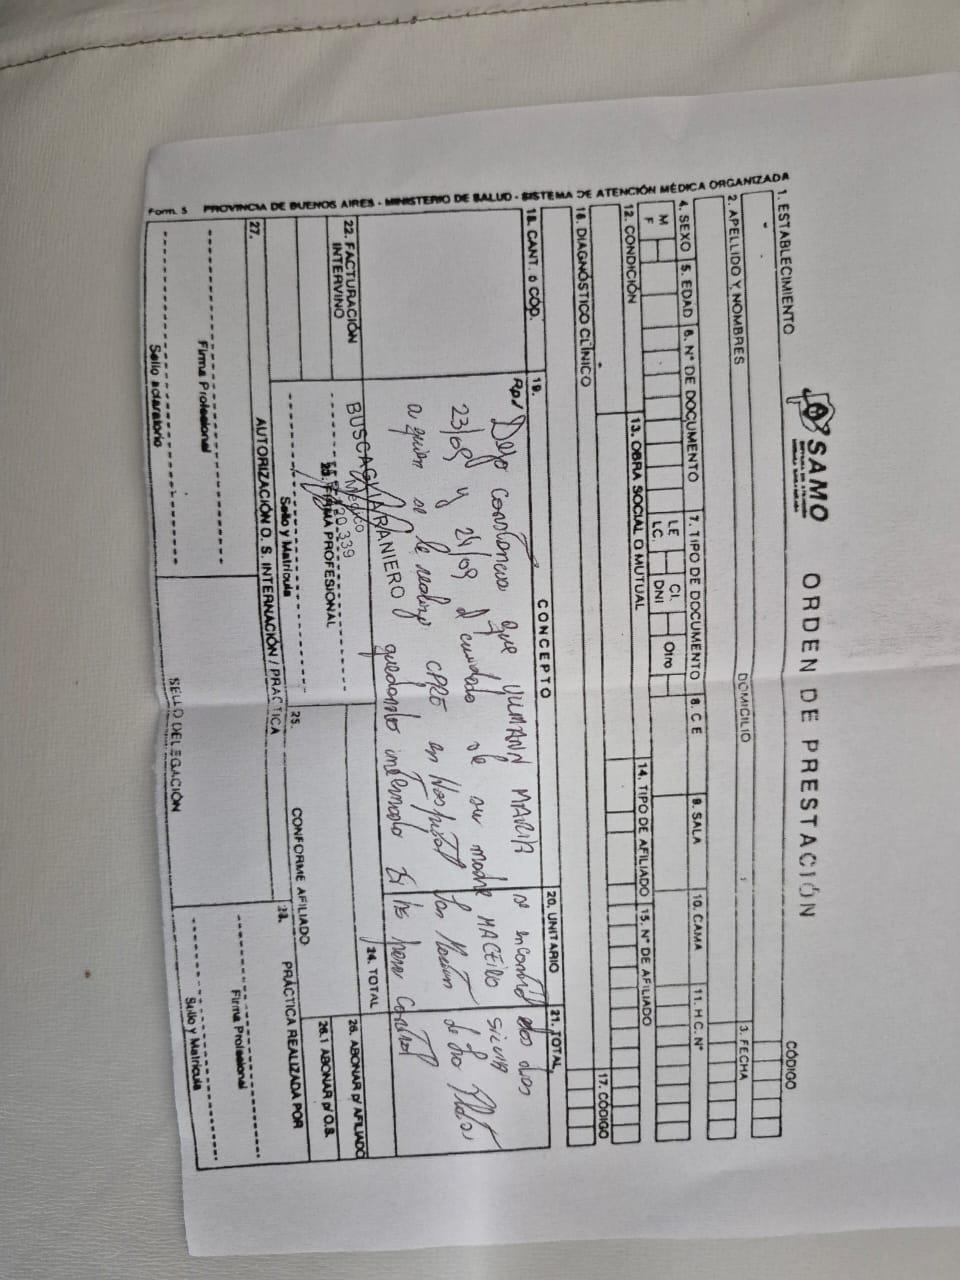 SAMO
ORDEN DE PRESTACIÓN
CÓDIGO
1. ESTABLECIMIENTO
2. APELLIDO Y NOMBRES
DOMICILIO
3. FECHA
4. SEXO
5. EDAD
6. N° DE DOCUMENTO
7. TIPO DE DOCUMENTO
8. C E
9. SALA
10. CAMA
11. H C. N°
M
F
LE
LC.
CI.
DNI
Otro
12. CONDICIÓN
13. OBRA SOCIAL O MUTUAL
14. TIPO DE AFILIADO
15. N° DE AFILIADO
16. DIAGNÓSTICO CLÍNICO
17. CÓDIGO
18. CANT. o CÓD.
19.
CONCEPTO
20. UNITARIO
21. TOTAL
Rp/ Dejo constancia que YUMANN MARIA se encontró los días
23/09 y 24/09 al cuidado de su madre MACEIDO SILVIA
a quien se le realizo CPRE en Hospital San Martin de La Plata
quedando internada para control
22. FACTURACIÓN INTERVINO
BUSCAGLIA RANIERO
Médico
120.339
23. FIRMA PROFESIONAL
Sello y Matrícula
24. TOTAL
25.
CONFORME AFILIADO
26. ABONAR p/ AFILIADO
26.1 ABONAR p/ O.S.
27.
AUTORIZACIÓN O. S. INTERNACIÓN / PRÁCTICA
28.
PRÁCTICA REALIZADA POR
Firma Profesional
Sello aclaratorio
SELLO DELEGACIÓN
Firma Profesional
Sello y Matrícula
Form. 5 PROVINCIA DE BUENOS AIRES - MINISTERIO DE SALUD - SISTEMA DE ATENCIÓN MÉDICA ORGANIZADA